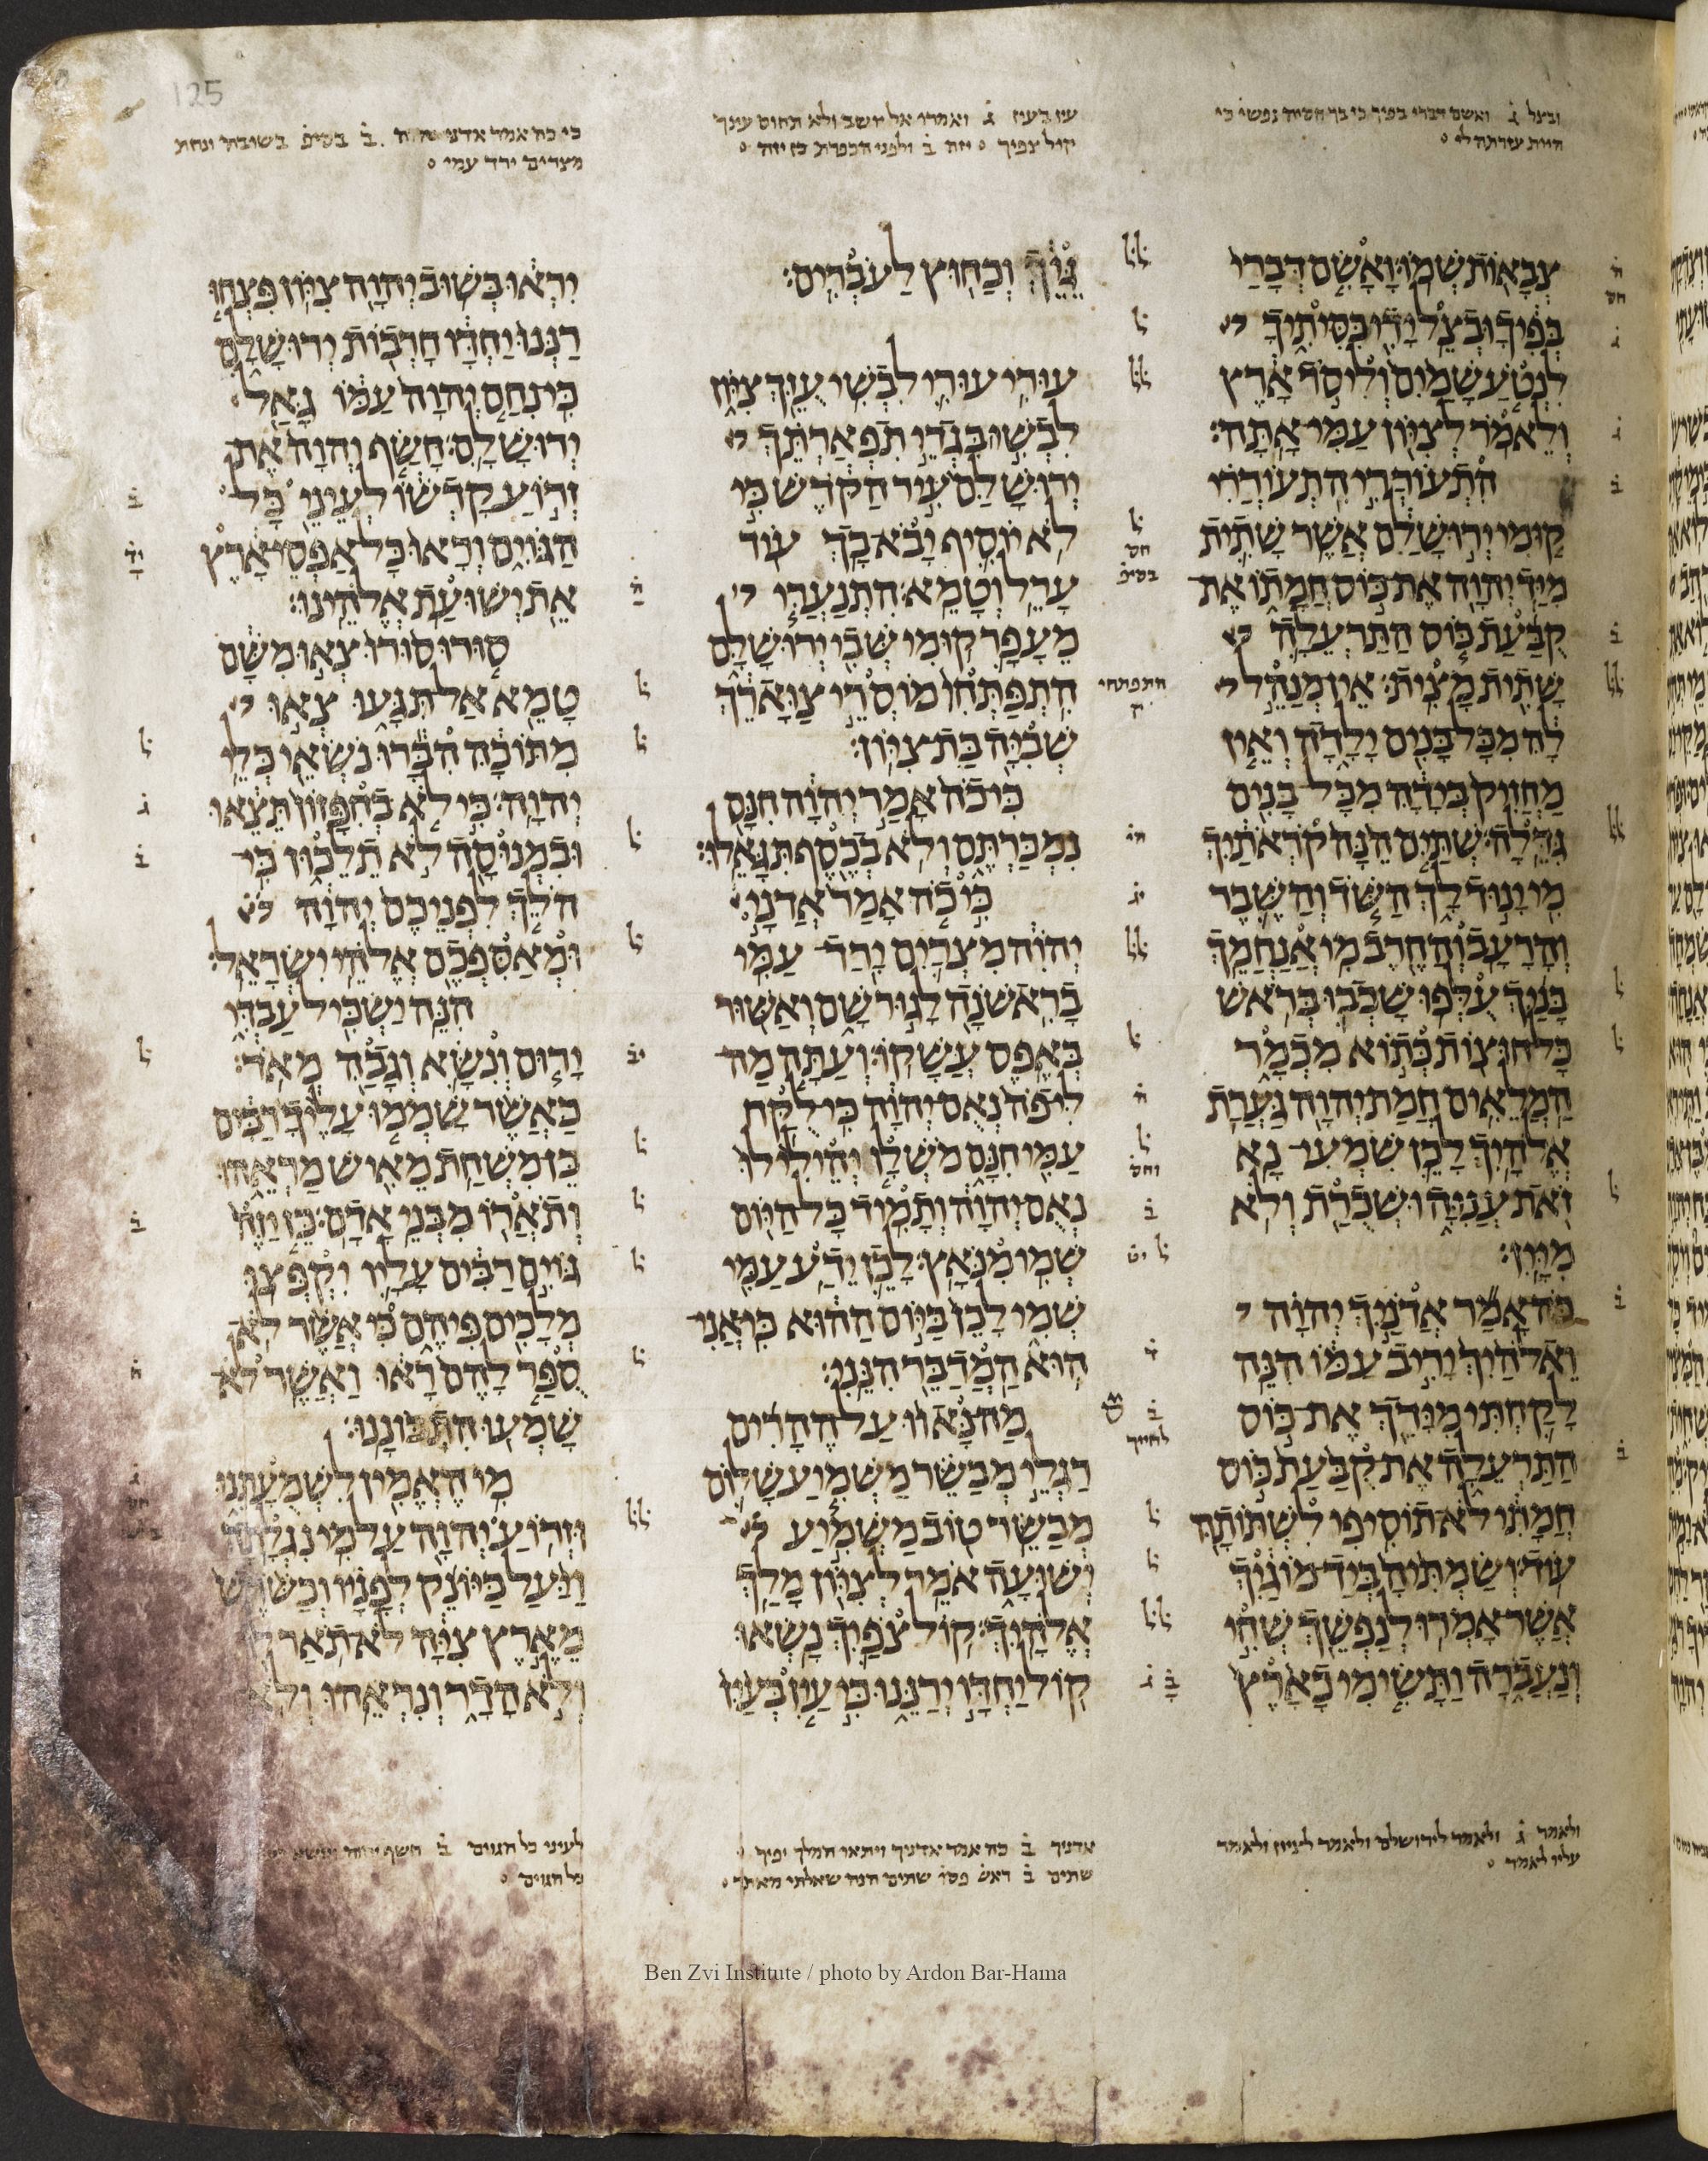 125
ובצל ג ואשם דברי בפיך כי בך חסיה נפשי כי
היית עזרתה לי
עין בעין ג ואמרו אל יושב ולא תחוס עינך
קול צפיך יזה ב ולפני הכפרת כן יזה
כי כה אמר אדני יהוה ב בסיפ בשובה ונחת
מצרים ירד עמי
צבאות שמו ואשם דברי
בפיך ובצל ידי כסיתיך
לנטע שמים וליסד ארץ
ולאמר לציון עמי אתה
התעוררי התעוררי
קומי ירושלם אשר שתית
מיד יהוה את כוס חמתו את
קבעת כוס התרעלה
שתית מצית אין מנהל
לה מכל בנים ילדה ואין
מחזיק בידה מכל בנים
גדלה שתים הנה קראתיך
מי ינוד לך השד והשבר
והרעב והחרב מי אנחמך
בניך עלפו שכבו בראש
כל חוצות כתוא מכמר
המלאים חמת יהוה גערת
אלהיך לכן שמעי נא
זאת עניה ושכרת ולא
מיין
כה אמר אדניך יהוה
ואלהיך יריב עמו הנה
לקחתי מידך את כוס
התרעלה את קבעת כוס
חמתי לא תוסיפי לשתותה
עוד ושמתיה ביד מוגיך
אשר אמרו לנפשך שחי
ונעברה ותשימי כארץ
גיוך וכחוץ לעברים
עורי עורי לבשי עזך ציון
לבשי בגדי תפארתך
ירושלם עיר הקדש כי
לא יוסיף יבא בך עוד
ערל וטמא התנערי
מעפר קומי שבי ירושלם
התפתחו מוסרי צוארך
התפתחי
ק
שביה בת ציון
כי כה אמר יהוה חנם
נמכרתם ולא בכסף תגאלו
כי כה אמר אדני
יהוה מצרים ירד עמי
בראשנה לגור שם ואשור
באפס עשקו ועתה מה
לי פה נאם יהוה כי לקח
עמי חנם משלו יהילילו
נאם יהוה ותמיד כל היום
שמי מנאץ לכן ידע עמי
שמי לכן ביום ההוא כי אני
הוא המדבר הנני
מה נאוו על ההרים
רגלי מבשר משמיע שלום
מבשר טוב משמיע
ישועה אמר לציון מלך
אלהיך קול צפיך נשאו
קול יחדו ירננו כי עין בעין
יראו בשוב יהוה ציון פצחו
רננו יחדו חרבות ירושלם
כי נחם יהוה עמו גאל
ירושלם חשף יהוה את
זרוע קדשו לעיני כל
הגוים וראו כל אפסי ארץ
את ישועת אלהינו
סורו סורו צאו משם
טמא אל תגעו צאו
מתוכה הברו נשאי כלי
יהוה כי לא בחפזון תצאו
ובמנוסה לא תלכון כי
הלך לפניכם יהוה
ומאספכם אלהי ישראל
הנה ישכיל עבדי
ירום ונשא וגבה מאד
כאשר שממו עליך רבים
כן משחת מאיש מראהו
ותארו מבני אדם כן יזה
גוים רבים עליו יקפצו
מלכים פיהם כי אשר לא
ספר להם ראו ואשר לא
שמעו התבוננו
מי האמין לשמעתנו
וזרוע יהוה על מי נגלתה
ויעל כיונק לפניו וכשרש
מארץ ציה לא תאר
ולא הדר ונראהו ולא
ולאמר ג ולאמר לירושלם ולאמר לציון ולאומר
עליו לאמר
אדניך ב כה אמר אדניך ויתאו המלך יפיך
שתים ב ראש פסו שתים הנה שאלתי מאתך
לעיני כל הגוים ב חשף יהוה
כל הגוים
Ben Zvi Institute / photo by Ardon Bar-Hama